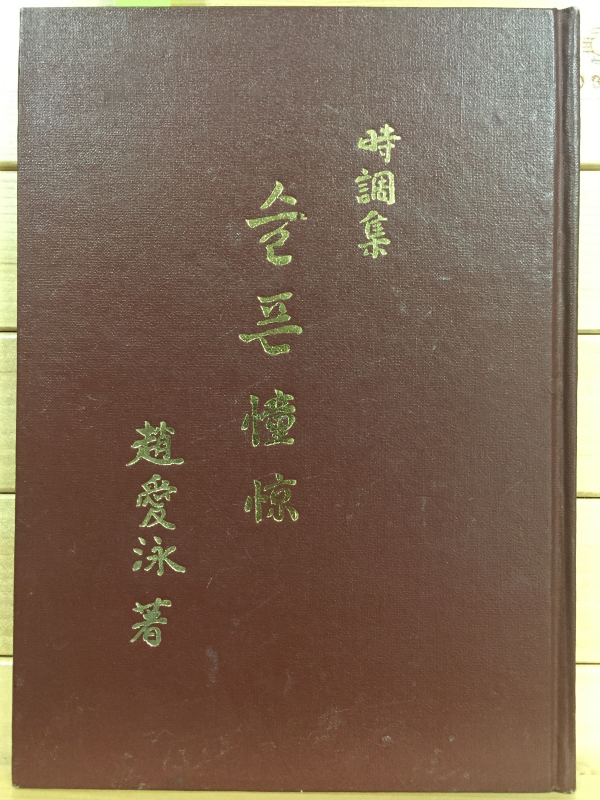 時調集
슬픈 憧憬
趙愛泳 著